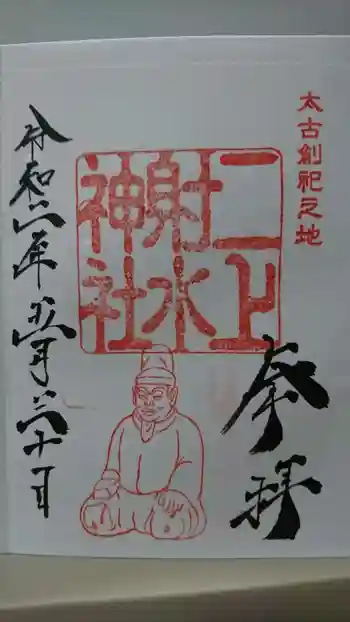 太古創祀之地
奉拝
二上
射水
神社
令和六年五月三十日